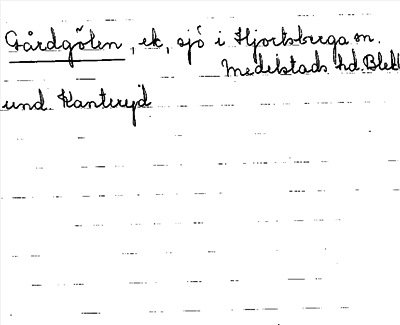 Gårdgölen, ek, sjö i Hjortsberga sn.
Medelstads hd. Blek
und. Kanteryd